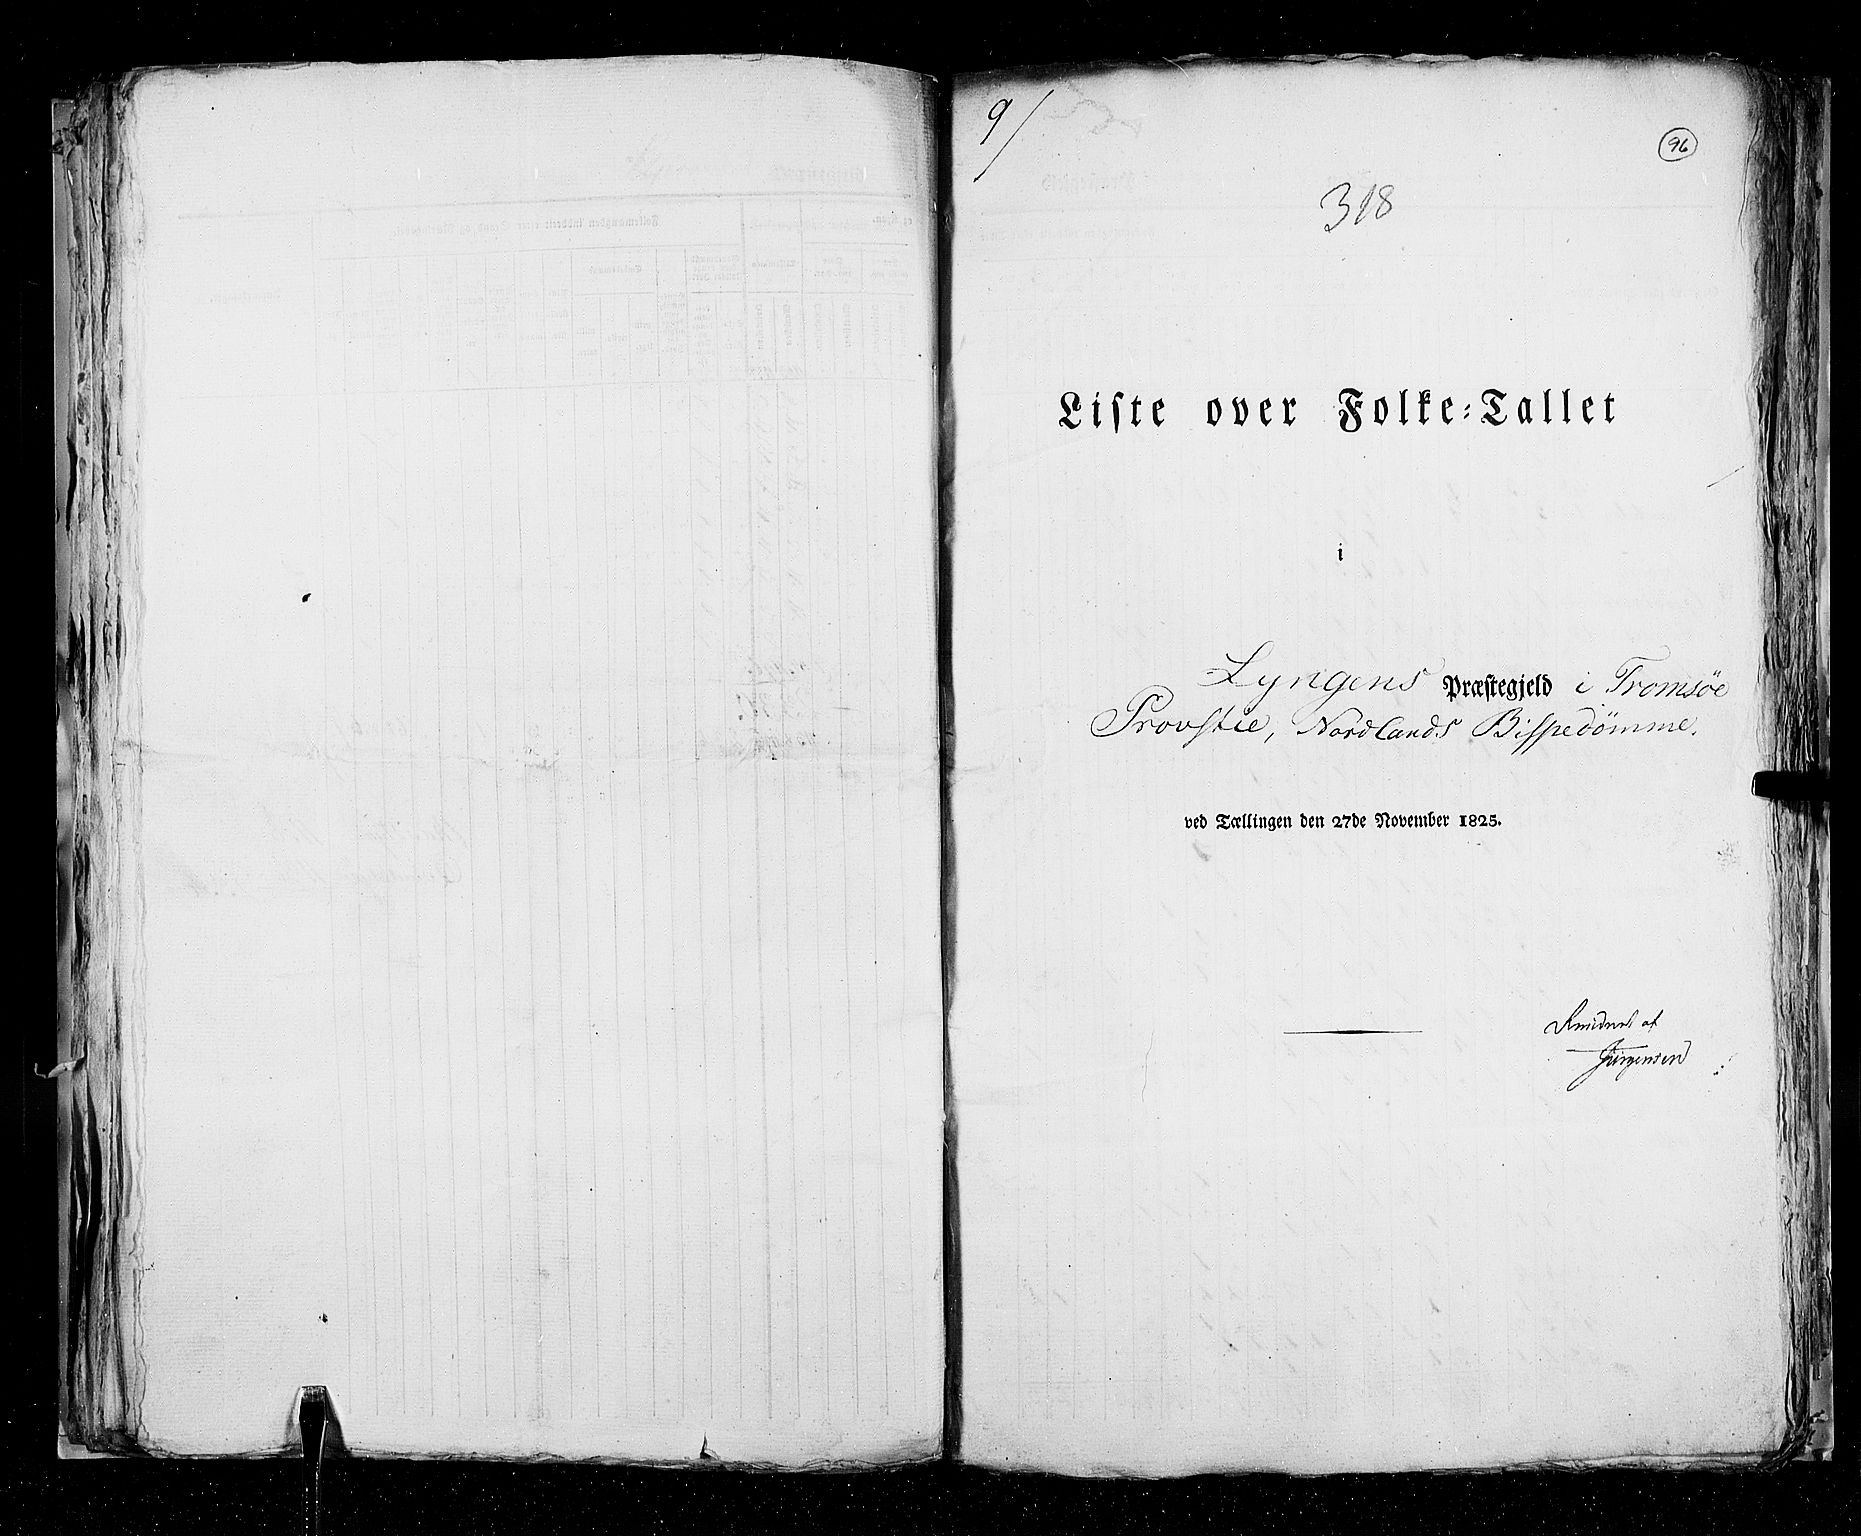 9/
96
318
Liste over Folke-Tallet
i
Lyngens Præstegjeld i Tromsöe
Provstie, Nordlands Bispedömme.
ved Tællingen den 27de November 1825.
Revideret af
Jürgensen